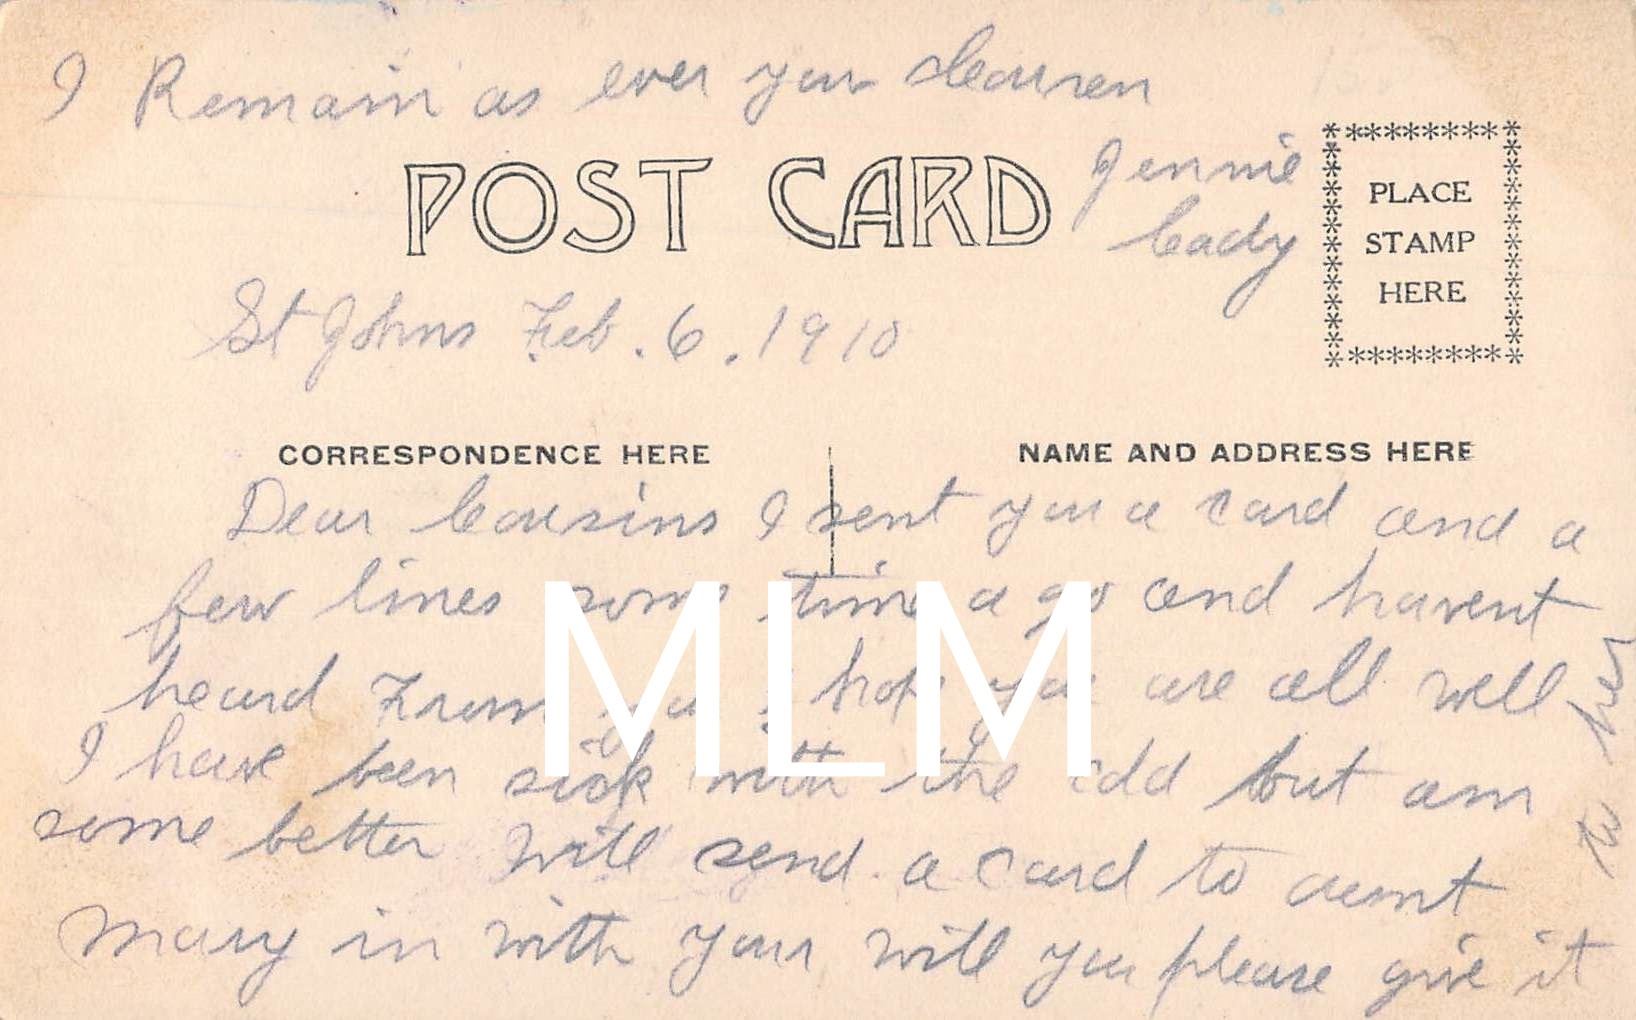 I Remain as ever your Cousen
Jennie
Cady
POST CARD
PLACE
STAMP
HERE
St Johns Feb. 6. 1910
CORRESPONDENCE HERE
NAME AND ADDRESS HERE
Dear Cousins I sent you a card and a
few lines some time a go and havent
heard From you I hope you are all well
I have been sick with the cold but am
some better will send a card to aunt
Mary in with your will you please give it
to her
MLM